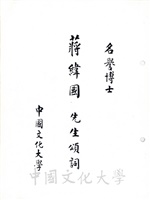 名譽博士
蔣緯國 先生頌詞
中國文化大學
中國文化大學